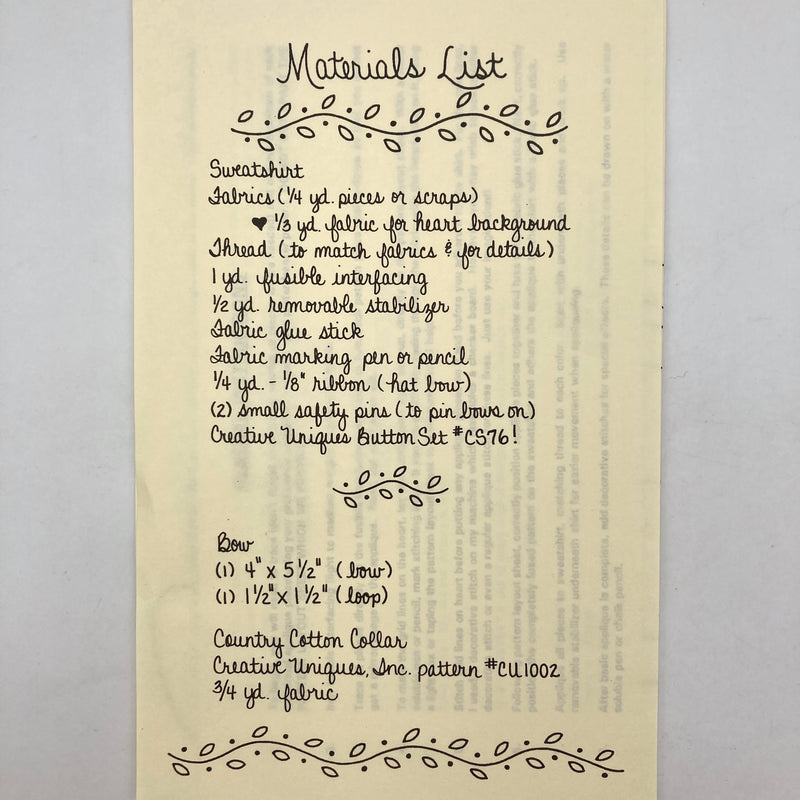 Materials List
Sweatshirt
Fabrics (1/4 yd. pieces or scraps)
♥ 1/3 yd. fabric for heart background
Thread (to match fabrics & for details)
1 yd. fusible interfacing
1/2 yd. removable stabilizer
Fabric glue stick
Fabric marking pen or pencil
1/4 yd. - 1/8" ribbon (hat bow)
(2) small safety pins (to pin bows on)
Creative Uniques Button Set #CS76!
Bow
(1) 4" x 5 1/2" (bow)
(1) 1 1/2" x 1 1/2" (loop)
Country Cotton Collar
Creative Uniques, Inc. pattern #CU1002
3/4 yd. fabric